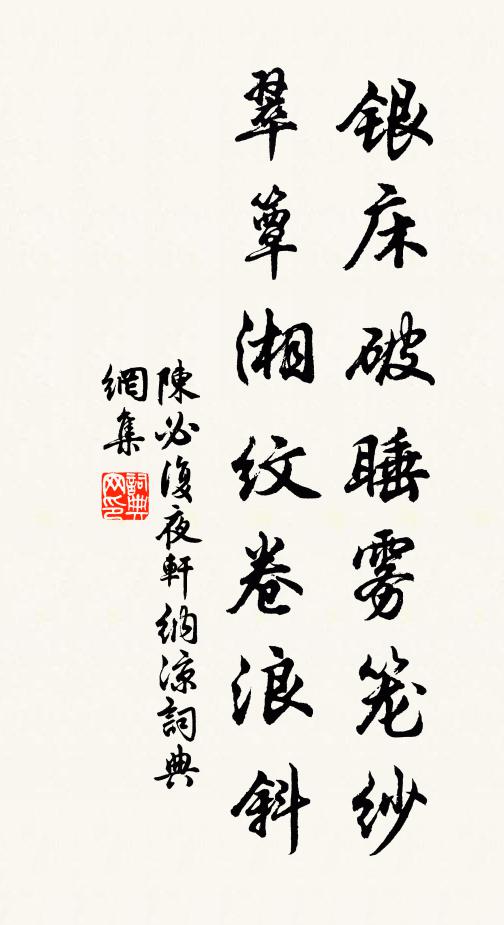 银床破睡雾笼纱
翠簟湘纹卷浪斜
陳必復夜軒納涼詞典
網集
詞典
网印